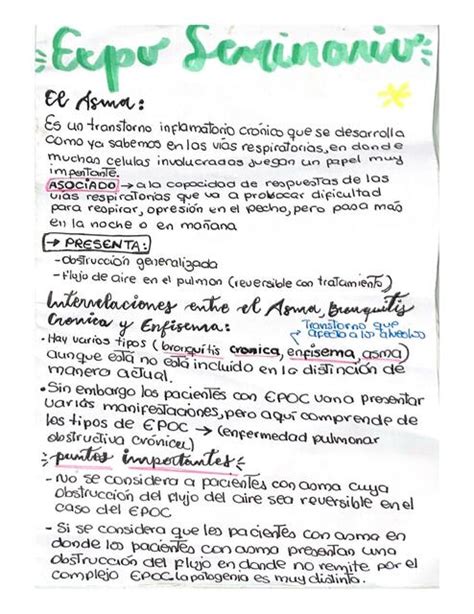 Expo Seminario
El Asma:
Es un transtorno inflamatorio crónico que se desarrolla
como ya sabemos en las vías respiratorias, en donde
muchas celulas involucradas juegan un papel muy
importante.
ASOCIADO → a la capacidad de respuestas de las
vías respiratorias que va a probocar dificultad
para respirar, opresión en el pecho, pero pasa más
en la noche o en mañana
→ PRESENTA:
- Obstrucción generalizada
- Flujo de aire en el pulmon (reversible con tratamiento)
Interrelaciones entre el Asma, Bronquitis
Cronica y Enfisema:
Transtorno que
afecta a los alveolos
• Hay varios tipos (bronquitis cronica, enfisema, asma)
aunque está no está incluido en la distinción de
manera actual.
• Sin embargo los pacientes con EPOC van a presentar
varias manifestaciones, pero aquí comprende de
los tipos de EPOC → (enfermedad pulmonar
obstructiva crónica)
puntos importantes
- No se considera a pacientes con asma cuya
obstrucción del flujo del aire sea reversible en el
caso del EPOC
- Si se considera que los pacientes con asma en
donde los pacientes con asma presentan una
obstrucción del flujo en donde no remite por el
complejo EPOC. La patogenia es muy distinta.